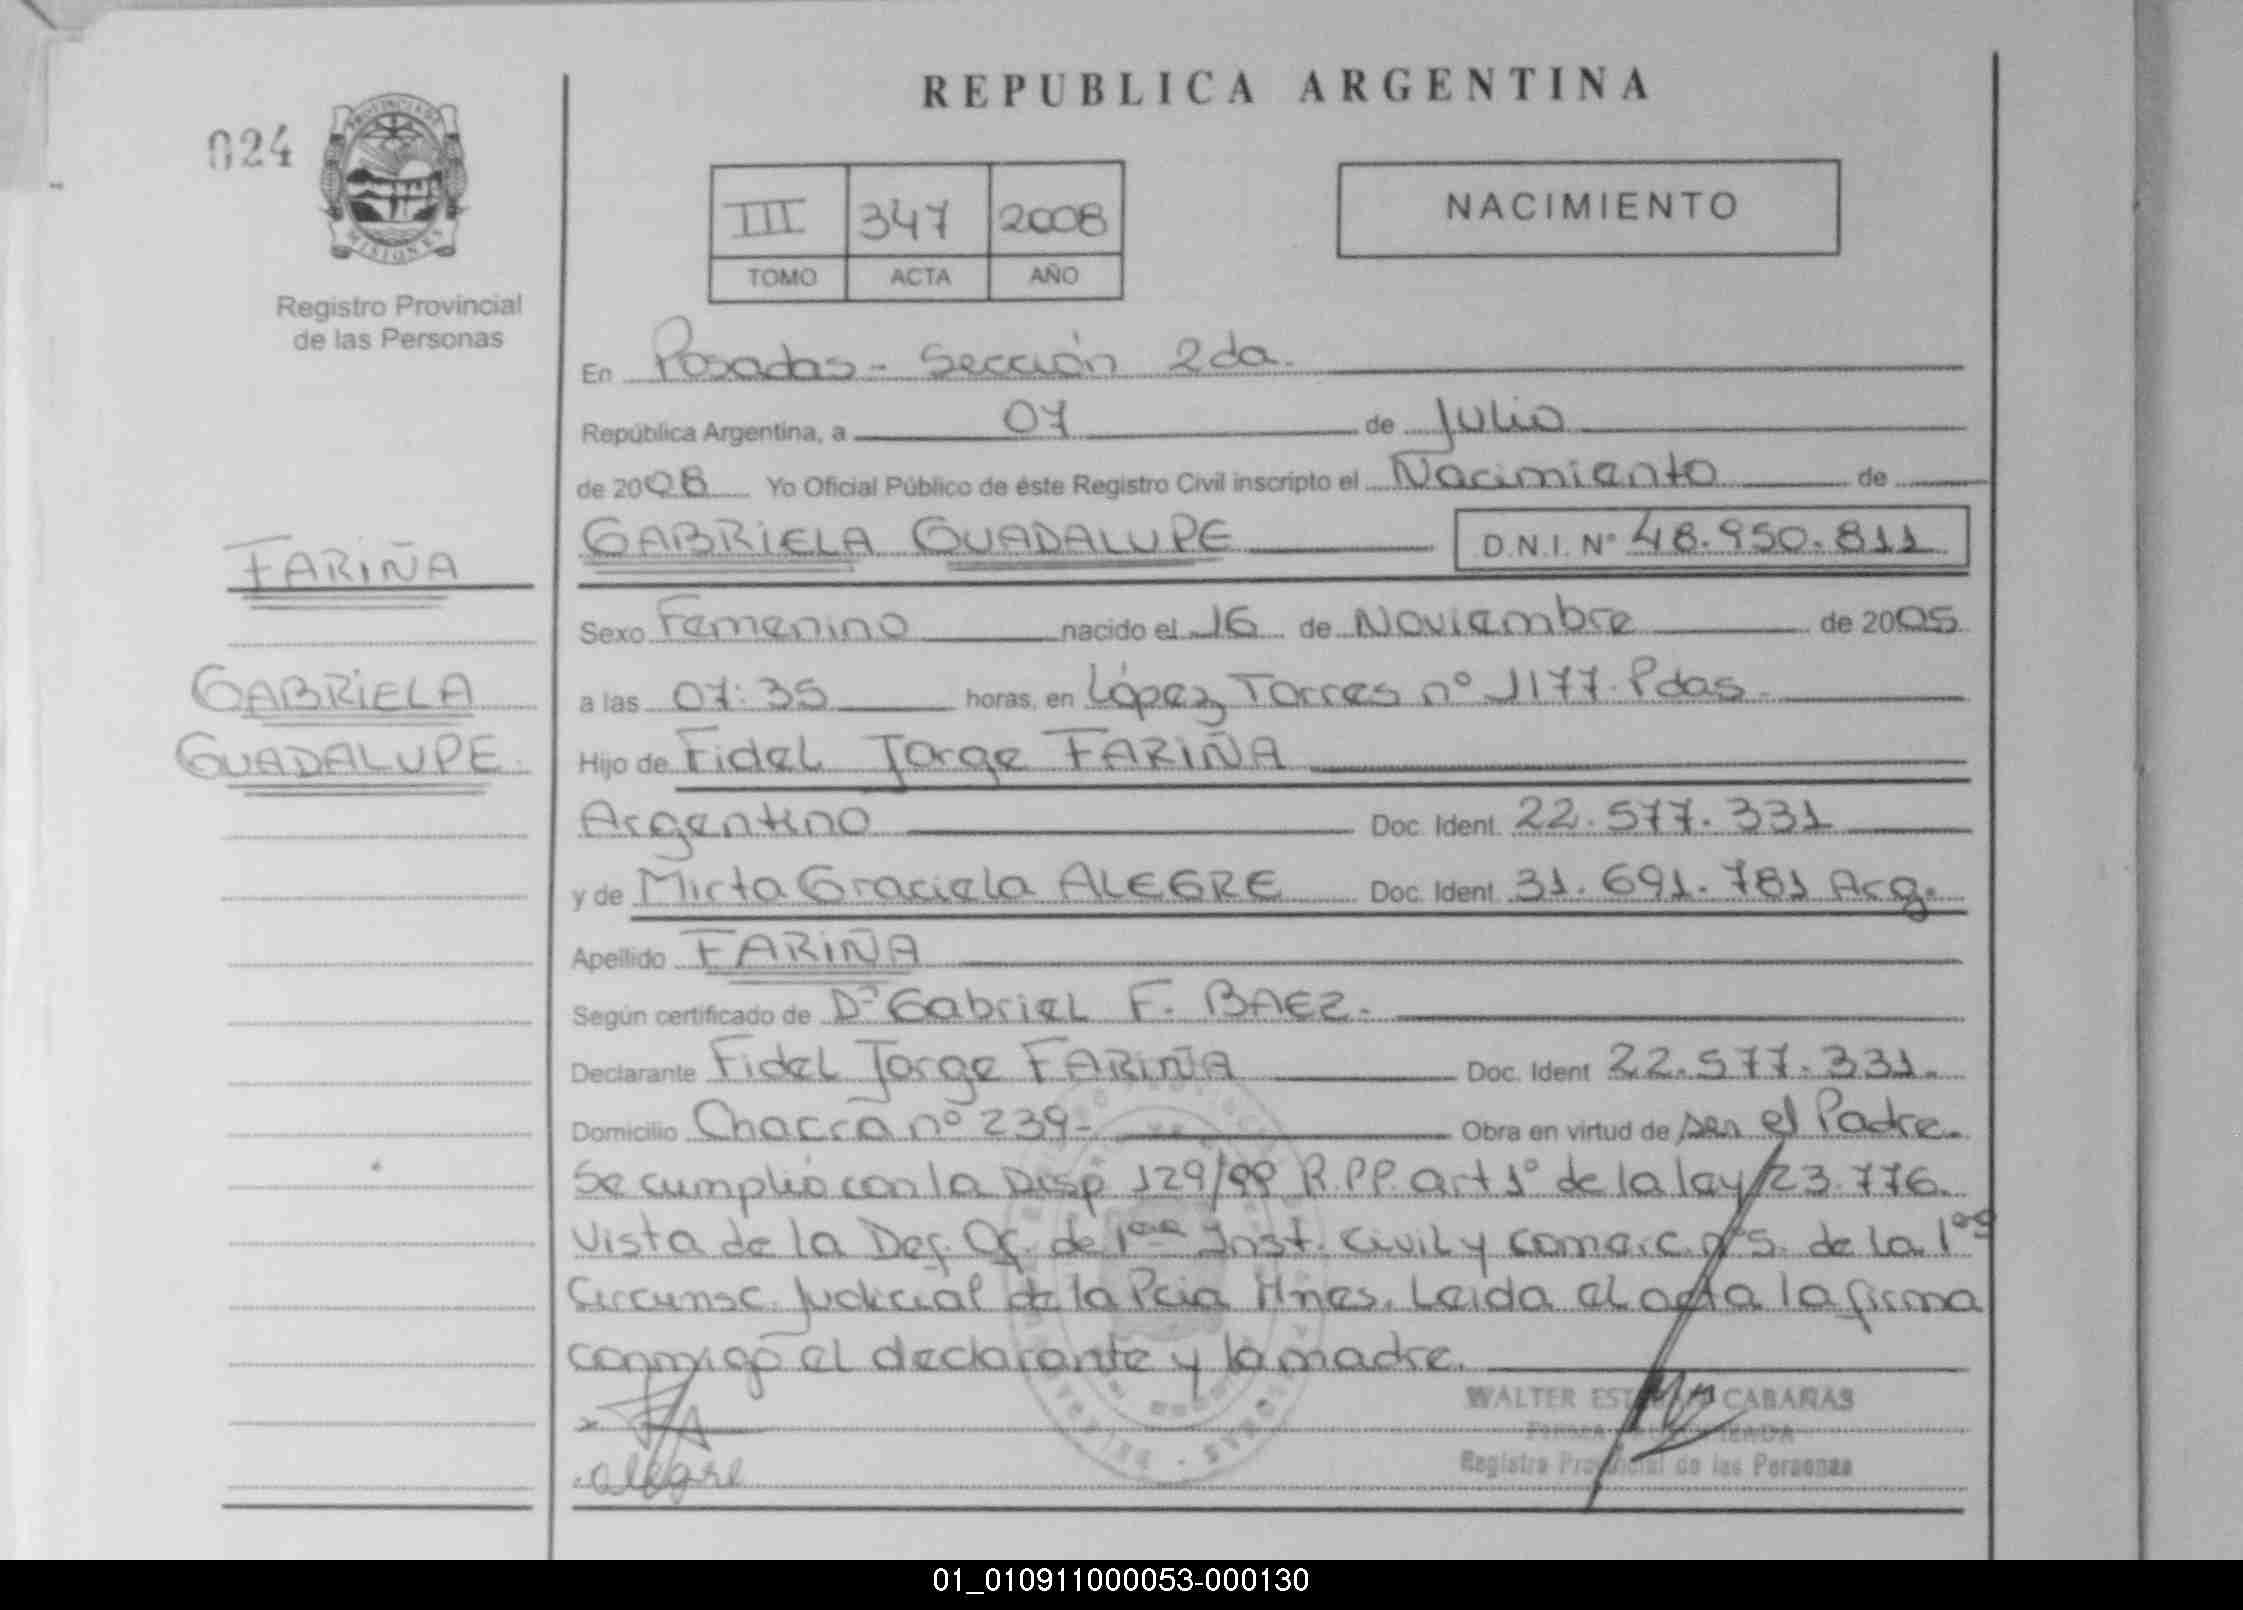 REPUBLICA ARGENTINA
024
PROVINCIA DE
MISIONES
Registro Provincial
de las Personas
III 347 2008
TOMO ACTA AÑO
NACIMIENTO
En Posadas - Sección 2da.
República Argentina, a 07 de Julio
de 2008 Yo Oficial Público de éste Registro Civil inscripto el Nacimiento de
FARIÑA
GABRIELA GUADALUPE D.N.I. Nº 48.950.811
Sexo Femenino nacido el 16 de Noviembre de 2005
GABRIELA
a las 07:35 horas, en López Torres nº 1177. Pdas.
GUADALUPE.
Hijo de Fidel Jorge FARIÑA
Argentino Doc. Ident. 22.577.331
y de Mirta Graciela ALEGRE Doc. Ident. 31.691.781 Arg.
Apellido FARIÑA
Según certificado de Dr Gabriel F. BAEZ.
Declarante Fidel Jorge FARIÑA Doc. Ident 22.577.331.
Domicilio Chacra nº 239- Obra en virtud de ser el Padre.
Se cumplió con la Disp 129/99 R.P.P. art 1º de la ley 23.776.
Vista de la Def. Of. de 1era Inst. Civil y Comerc. nº 5. de la 1era
Circunsc. Judicial de la Pcia Mnes. Leida el acta la firma
conmigo el declarante y la madre.
WALTER CABAÑAS
Alegre
Registro Provincial de las Personas
01_010911000053-000130